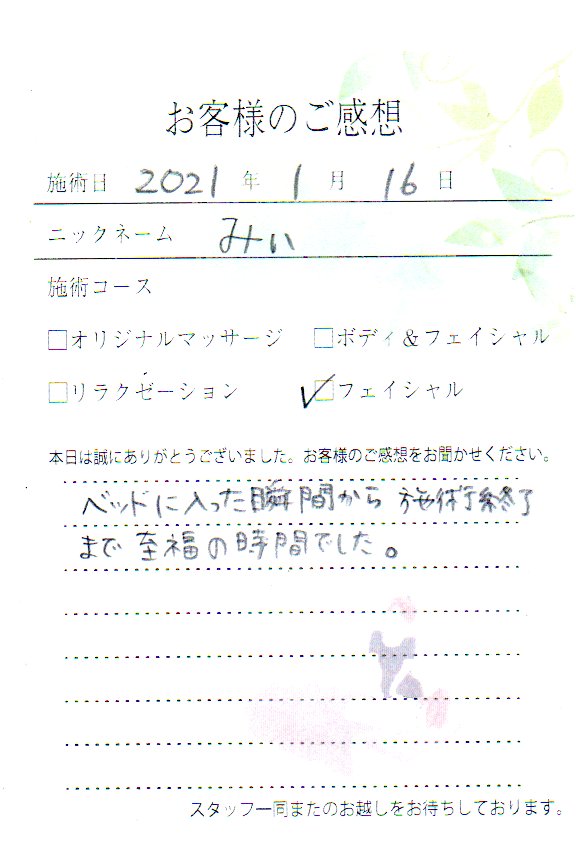 お客様のご感想
施術日 2021 年 1 月 16 日
ニックネーム みぃ
施術コース
□オリジナルマッサージ □ボディ＆フェイシャル
□リラクゼーション ✓□フェイシャル
本日は誠にありがとうございました。お客様のご感想をお聞かせください。
ベッドに入った瞬間から 施術終了
まで 至福の時間でした。
スタッフ一同またのお越しをお待ちしております。